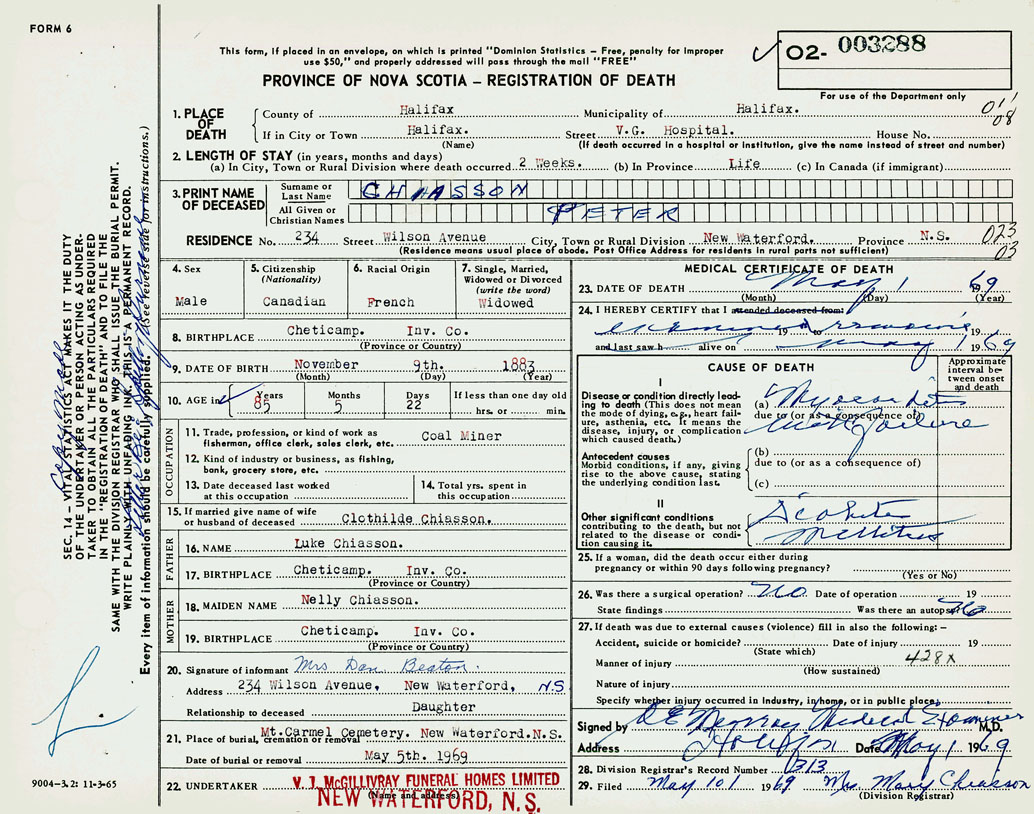 FORM 6
This form, if placed in an envelope, on which is printed "Dominion Statistics — Free, penalty for improper
use $50," and properly addressed will pass through the mail "FREE"
PROVINCE OF NOVA SCOTIA — REGISTRATION OF DEATH
02- 003288
For use of the Department only
011
08
1. PLACE OF DEATH
County of Halifax Municipality of Halifax.
If in City or Town Halifax. Street V.G. Hospital. House No.
(Name) (If death occurred in a hospital or institution, give the name instead of street and number)
2. LENGTH OF STAY (in years, months and days)
(a) In City, Town or Rural Division where death occurred 2 Weeks. (b) In Province Life (c) In Canada (if immigrant)
3. PRINT NAME OF DECEASED
Surname or Last Name CHIASSON
All Given or Christian Names PETER
RESIDENCE No. 234 Street Wilson Avenue City, Town or Rural Division New Waterford. Province N.S.
(Residence means usual place of abode. Post Office Address for residents in rural parts not sufficient)
023
03
4. Sex
Male
5. Citizenship
(Nationality)
Canadian
6. Racial Origin
French
7. Single, Married, Widowed or Divorced
(write the word)
Widowed
8. BIRTHPLACE Cheticamp. Inv. Co.
(Province or Country)
9. DATE OF BIRTH November 9th. 1883
(Month) (Day) (Year)
10. AGE in Years 85 Months 5 Days 22 If less than one day old
hrs. or min.
OCCUPATION
11. Trade, profession, or kind of work as
fisherman, office clerk, sales clerk, etc. Coal Miner
12. Kind of industry or business, as fishing,
bank, grocery store, etc.
13. Date deceased last worked
at this occupation
14. Total yrs. spent in
this occupation
15. If married give name of wife
or husband of deceased Clothilde Chiasson.
FATHER
16. NAME Luke Chiasson.
17. BIRTHPLACE Cheticamp. Inv. Co.
(Province or Country)
MOTHER
18. MAIDEN NAME Nelly Chiasson.
19. BIRTHPLACE Cheticamp. Inv. Co.
(Province or Country)
20. Signature of informant Mrs Dan Beaton.
Address 234 Wilson Avenue, New Waterford, N.S
Relationship to deceased Daughter
21. Place of burial, cremation or removal Mt. Carmel Cemetery. New Waterford. N.S.
Date of burial or removal May 5th. 1969
22. UNDERTAKER V. J. McGILLIVRAY FUNERAL HOMES LIMITED
(Name and address)
NEW WATERFORD, N. S.
MEDICAL CERTIFICATE OF DEATH
23. DATE OF DEATH May 1 1969
(Month) (Day) (Year)
24. I HEREBY CERTIFY that I attended deceased from:
examined 19 to 19
and last saw h alive on May 1 1969
CAUSE OF DEATH
Approximate interval between onset and death
I
Disease or condition directly leading to death (This does not mean the mode of dying, e.g., heart failure, asthenia, etc. It means the disease, injury, or complication which caused death.)
(a) Myocarditis
due to (or as a consequence of)
failure
Antecedent causes
Morbid conditions, if any, giving rise to the above cause, stating the underlying condition last.
(b)
due to (or as a consequence of)
(c)
II
Other significant conditions
contributing to the death, but not related to the disease or condition causing it.
Diabetes
Mellitus
25. If a woman, did the death occur either during
pregnancy or within 90 days following pregnancy?
(Yes or No)
26. Was there a surgical operation? No Date of operation 19
State findings Was there an autopsy? No
27. If death was due to external causes (violence) fill in also the following: —
Accident, suicide or homicide? Date of injury 19
(State which)
Manner of injury 428X
(How sustained)
Nature of injury
Specify whether injury occurred in industry, in home, or in public place.
Signed by Medical Examiner M.D.
Address Halifax Date May 1 1969
28. Division Registrar's Record Number 1313
29. Filed May 10 1969 Mrs. Mary Chiasson
(Division Registrar)
SEC. 14 — VITAL STATISTICS ACT MAKES IT THE DUTY
OF THE UNDERTAKER OR PERSON ACTING AS UNDER-
TAKER TO OBTAIN ALL THE PARTICULARS REQUIRED
IN THE "REGISTRATION OF DEATH" AND TO FILE THE
SAME WITH THE DIVISION REGISTRAR WHO SHALL ISSUE THE BURIAL PERMIT.
WRITE PLAINLY WITH UNFADING INK. THIS IS A PERMANENT RECORD.
Every item of information should be carefully supplied. (See reverse side for instructions.)
9004-3.2: 11-3-65